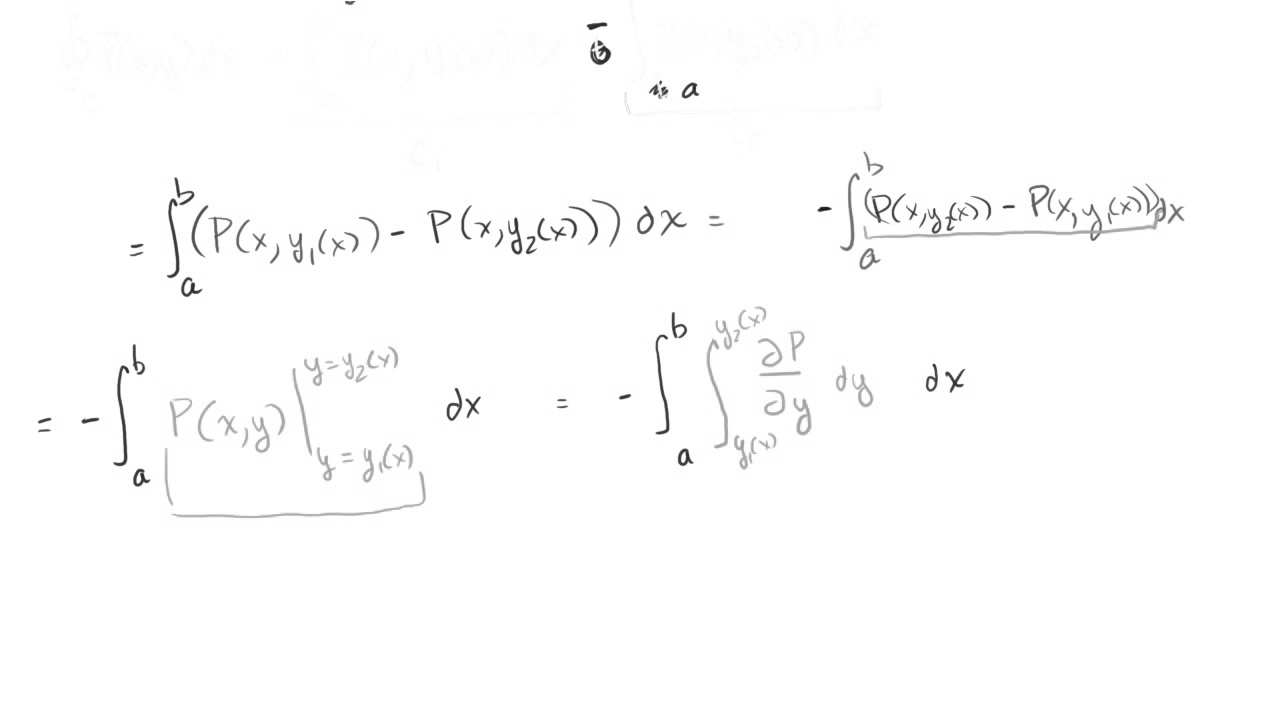 ∮_C P(x,y) dx = ∫ P(x, y₁(x)) dx ∫ P(x, y₂(x)) dx
a
C₁ C₂
= ∫_a^b (P(x, y₁(x)) - P(x, y₂(x))) dx = - ∫_a^b (P(x, y₂(x)) - P(x, y₁(x))) dx
= - ∫_a^b P(x,y) |_{y = y₁(x)}^{y = y₂(x)} dx = - ∫_a^b ∫_{y₁(x)}^{y₂(x)} ∂P/∂y dy dx